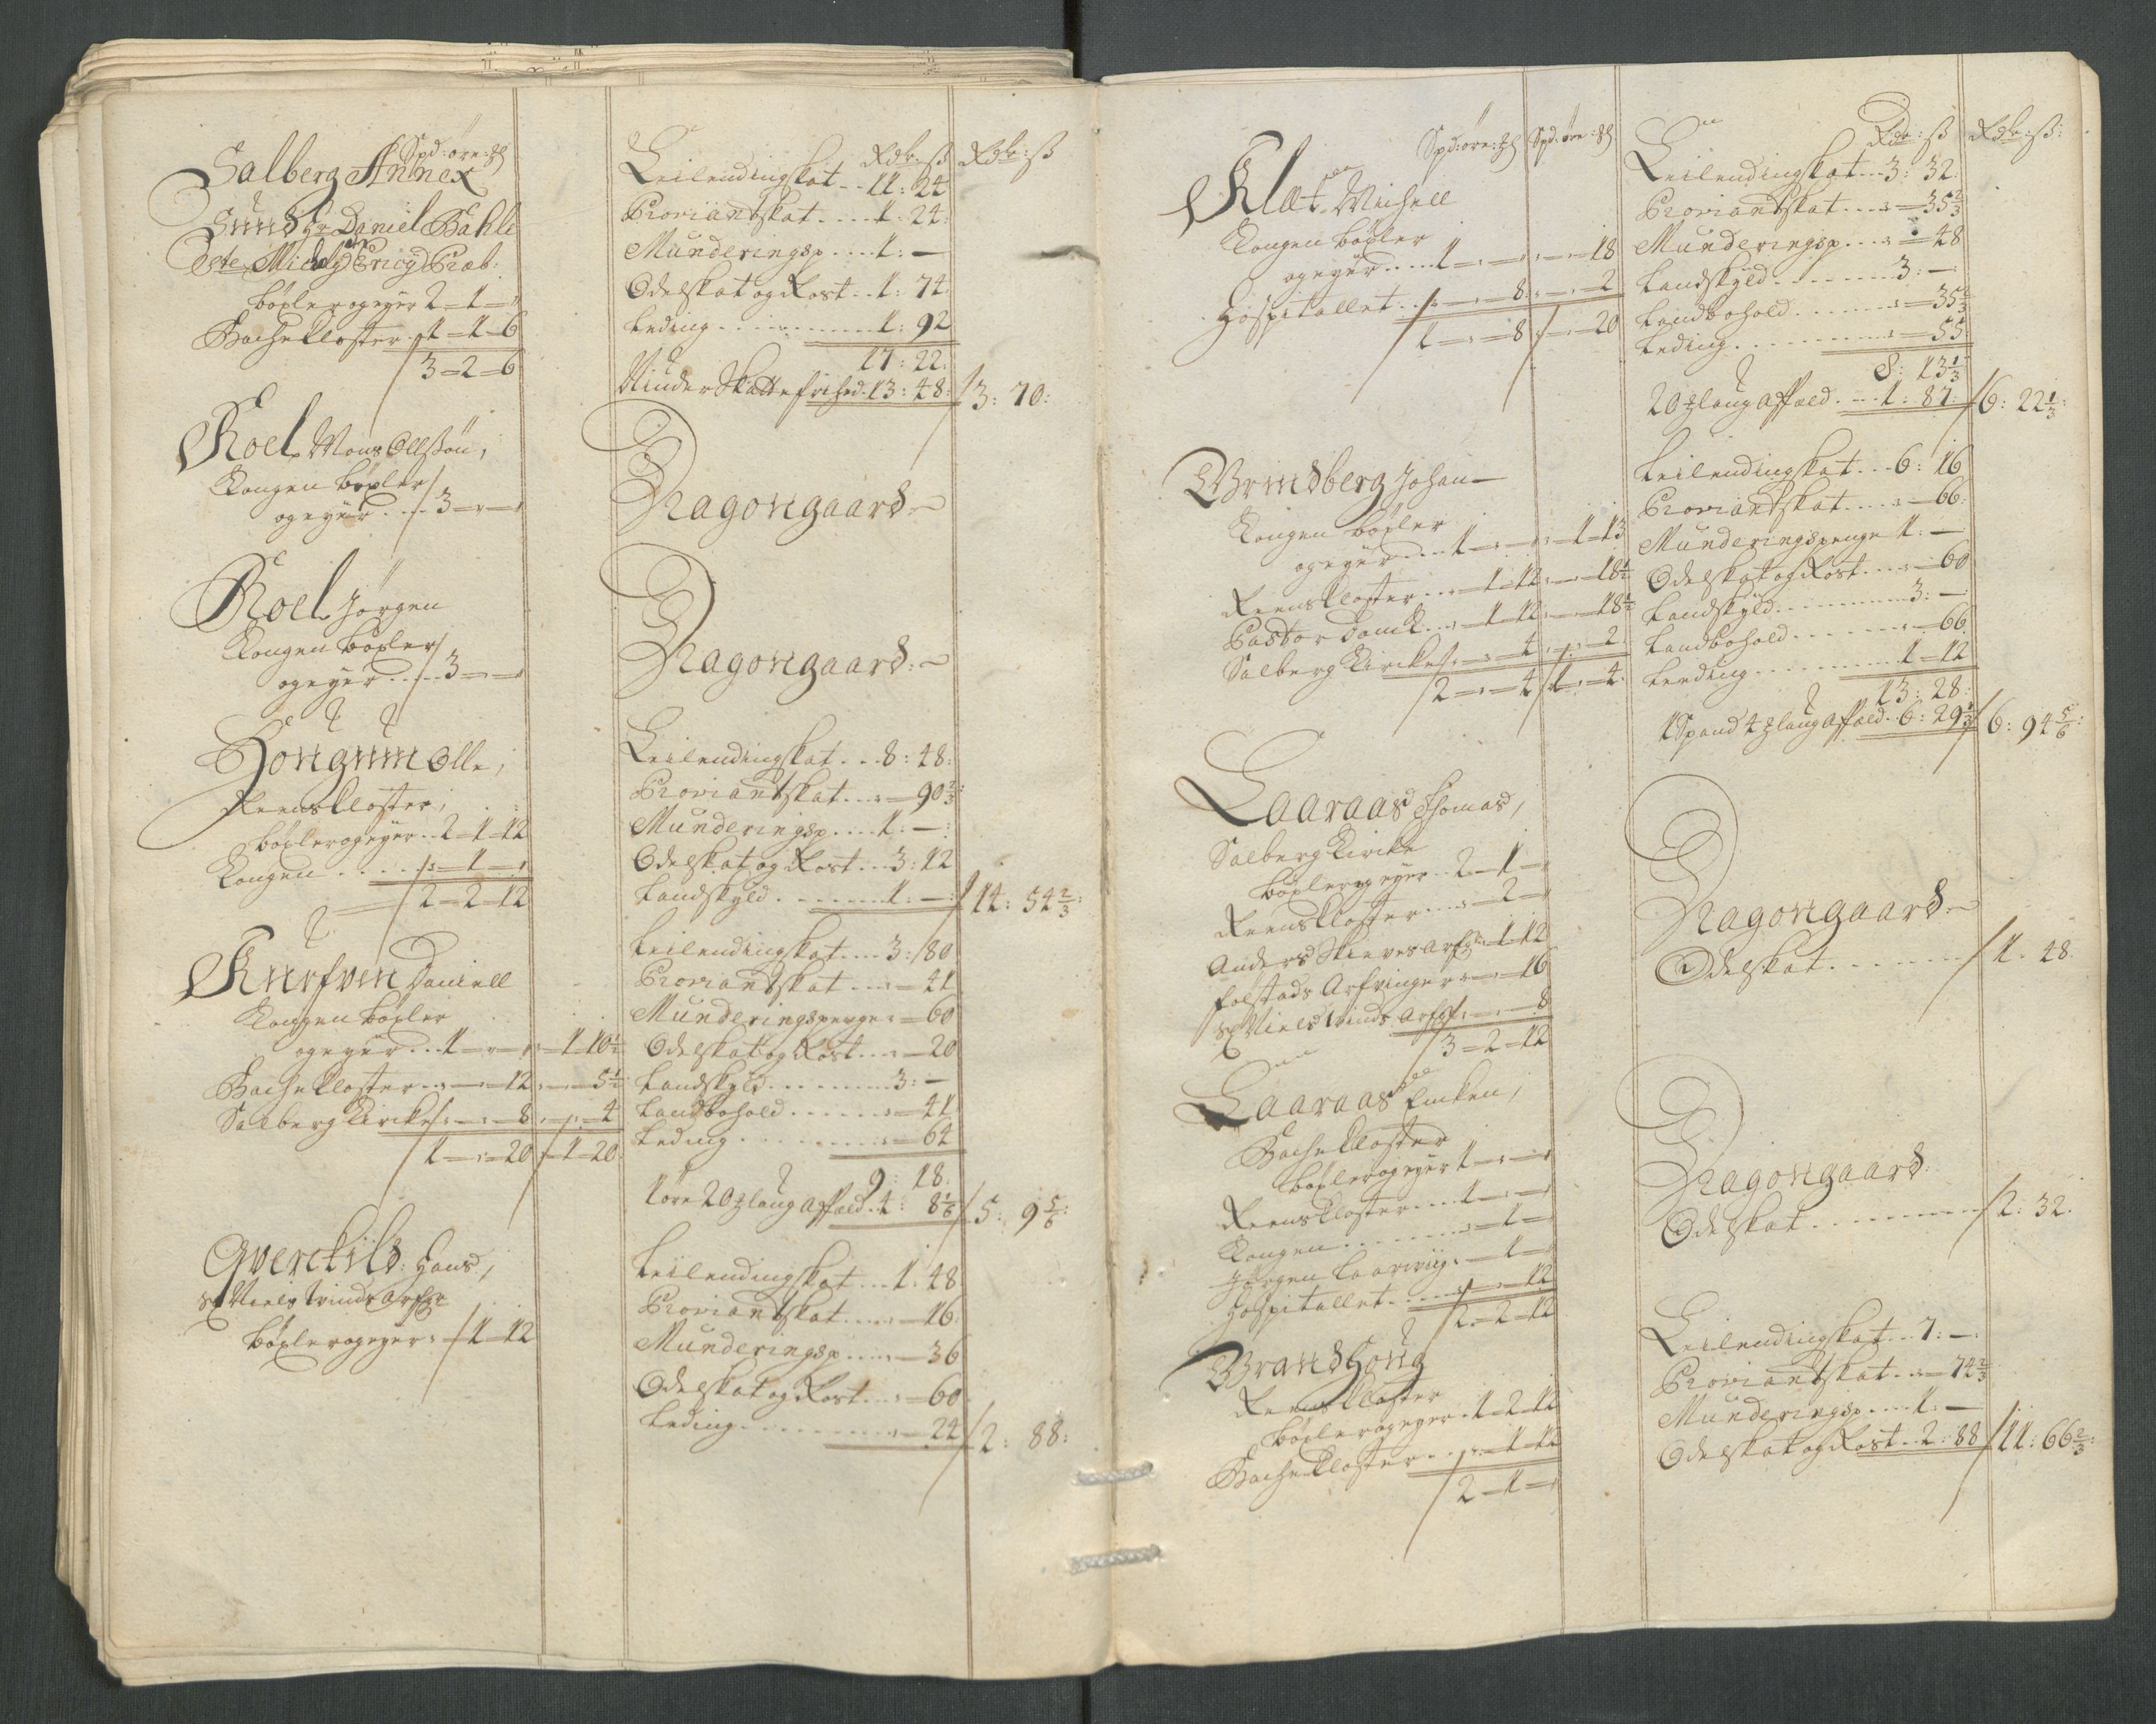 Spd: öre: mkl
Salberg Annex
Sund Hr Daniel Bahli
böxler og eyer 2-1-"
Bachekloster "1-1-6
3-2-6
Roel Mons Ollssön,
Kongen böxler
og eyer .... 3-"-"
Roel Jörgen
Kongen böxler
og eyer ..... 3-"-"
Hongnum Olle,
Reenskloster,
böxler og eyer .. 2-1-12
Kongen .... "-1-"
2-2-12
Kurfven Daniell
Kongen böxler
og eyer ... 1-"-" "-1-10½
Bachekloster ... "-"-12 "-"-5½
Salberg Kircke "-"-8 "-"-4
1-"-20 "-1-20
Qverckild: Hans,
Sl Niels Winds Arfg
böxler og eyer: "-1-12
Rdr: ß Rdr: ß
Leilendingskat .. 11: 24
Proviantskat .... 1: 24:
Munderingsp .... 1: —
Odelskat og Rost .. 1: 74:
Leding ........... 1: 92
17: 22:
Minder Skattefrihed. 13: 48: 3: 70:
Dragongaard.
Dragongaard:
Leilendingskat ... 8: 48:
Proviantskat ... "—90⅔:
Munderingsp .... 1: —:
Odelskat og Rost ... 3: 12
Landskyld ........ 1: —: 14: 54⅔:
Leilendingskat .... 3: 80
Proviantskat .... "—41
Munderingspenge "—60
Odelskat og Rost ... "—20
Landskyld ......... 3: —
Landbohold ...... "—41
Leding ......... "—64
9: 18:
1 öre 20 mkl aug Affæld .. 4: 8⅙ 5: 9⅚:
Leilendingskat ... 1: 48
Proviantskat ..... "—16
Munderingsp .... "—36
Odelskat og Rost ... "—60
Leding .......... "—24 2: 88:
Spd: öre: mkl Spd: öre: mkl
Klæt Michell
Kongen böxler
og eyer ..... 1-"-" "-"-18
Hospitallet .. "-"-8 "-"-2
1-"-8 "-"-20
Wrindberg Johan
Kongen böxler
og eyer .... 1-"-" "-1-13
Reenskloster .. "-1-12 "-"-18½
Pastor Domk .. "-1-12 "-"-18½
Salberg Kircke "-"-4 "-"-2
2-"-4 1-"-4
Laaraas Thomas,
Salberg Kircke
böxler og eyer .. 2-1-"
Reenskloster ... "-2-"
Anders Skieves Arfg: "-1-12
Folstads Arfvinger "-"-16
Sl Niels Winds Arfg "-"-8
3-2-12
Laaraas Encken,
Bachekloster
böxler og eyer 1-"-"
Reenskloster ... 1-"-"
Kongen ........ "-1-"
Jörgen Laarviig "-1-"
Hospitallet .... "-"-12
2-2-12
Wrandhoug
Reenskloster
böxler og eyer .. 1-2-12
Bachekloster .. "-1-12
2-1-"
Rdr: ß Rdr: ß:
Leilendingskat ... 3: 32:
Proviantskat .... "—35⅔
Munderingsp .... "—48
Landskyld ........ 3: —:
Landbohold ....... "—35⅔
Leding .......... "—55:
8: 13⅓
20 mkl aug Affæld .... 1: 87: 6: 22⅓:
Leilendingskat ... 6: 16
Proviantskat .... "—66:
Munderingspenge 1: —
Odelskat og Rost .... "—60
Landskyld ........... 3: —
Landbohold ....... "—66
Leeding .......... 1-12
13: 28:
1 Spand 4 mkl aug Affæld .. 6: 29⅓ 6: 94⅚:
Dragongaard
Odelskat ....... 1. 48.
Dragongaard
Odelskat ......... 2: 32.
Leilendingskat .. 7: —:
Proviantskat .. "—74⅔
Munderingsp .... 1: —
Odelskat og Rost .. 2: 88 11: 66⅔: